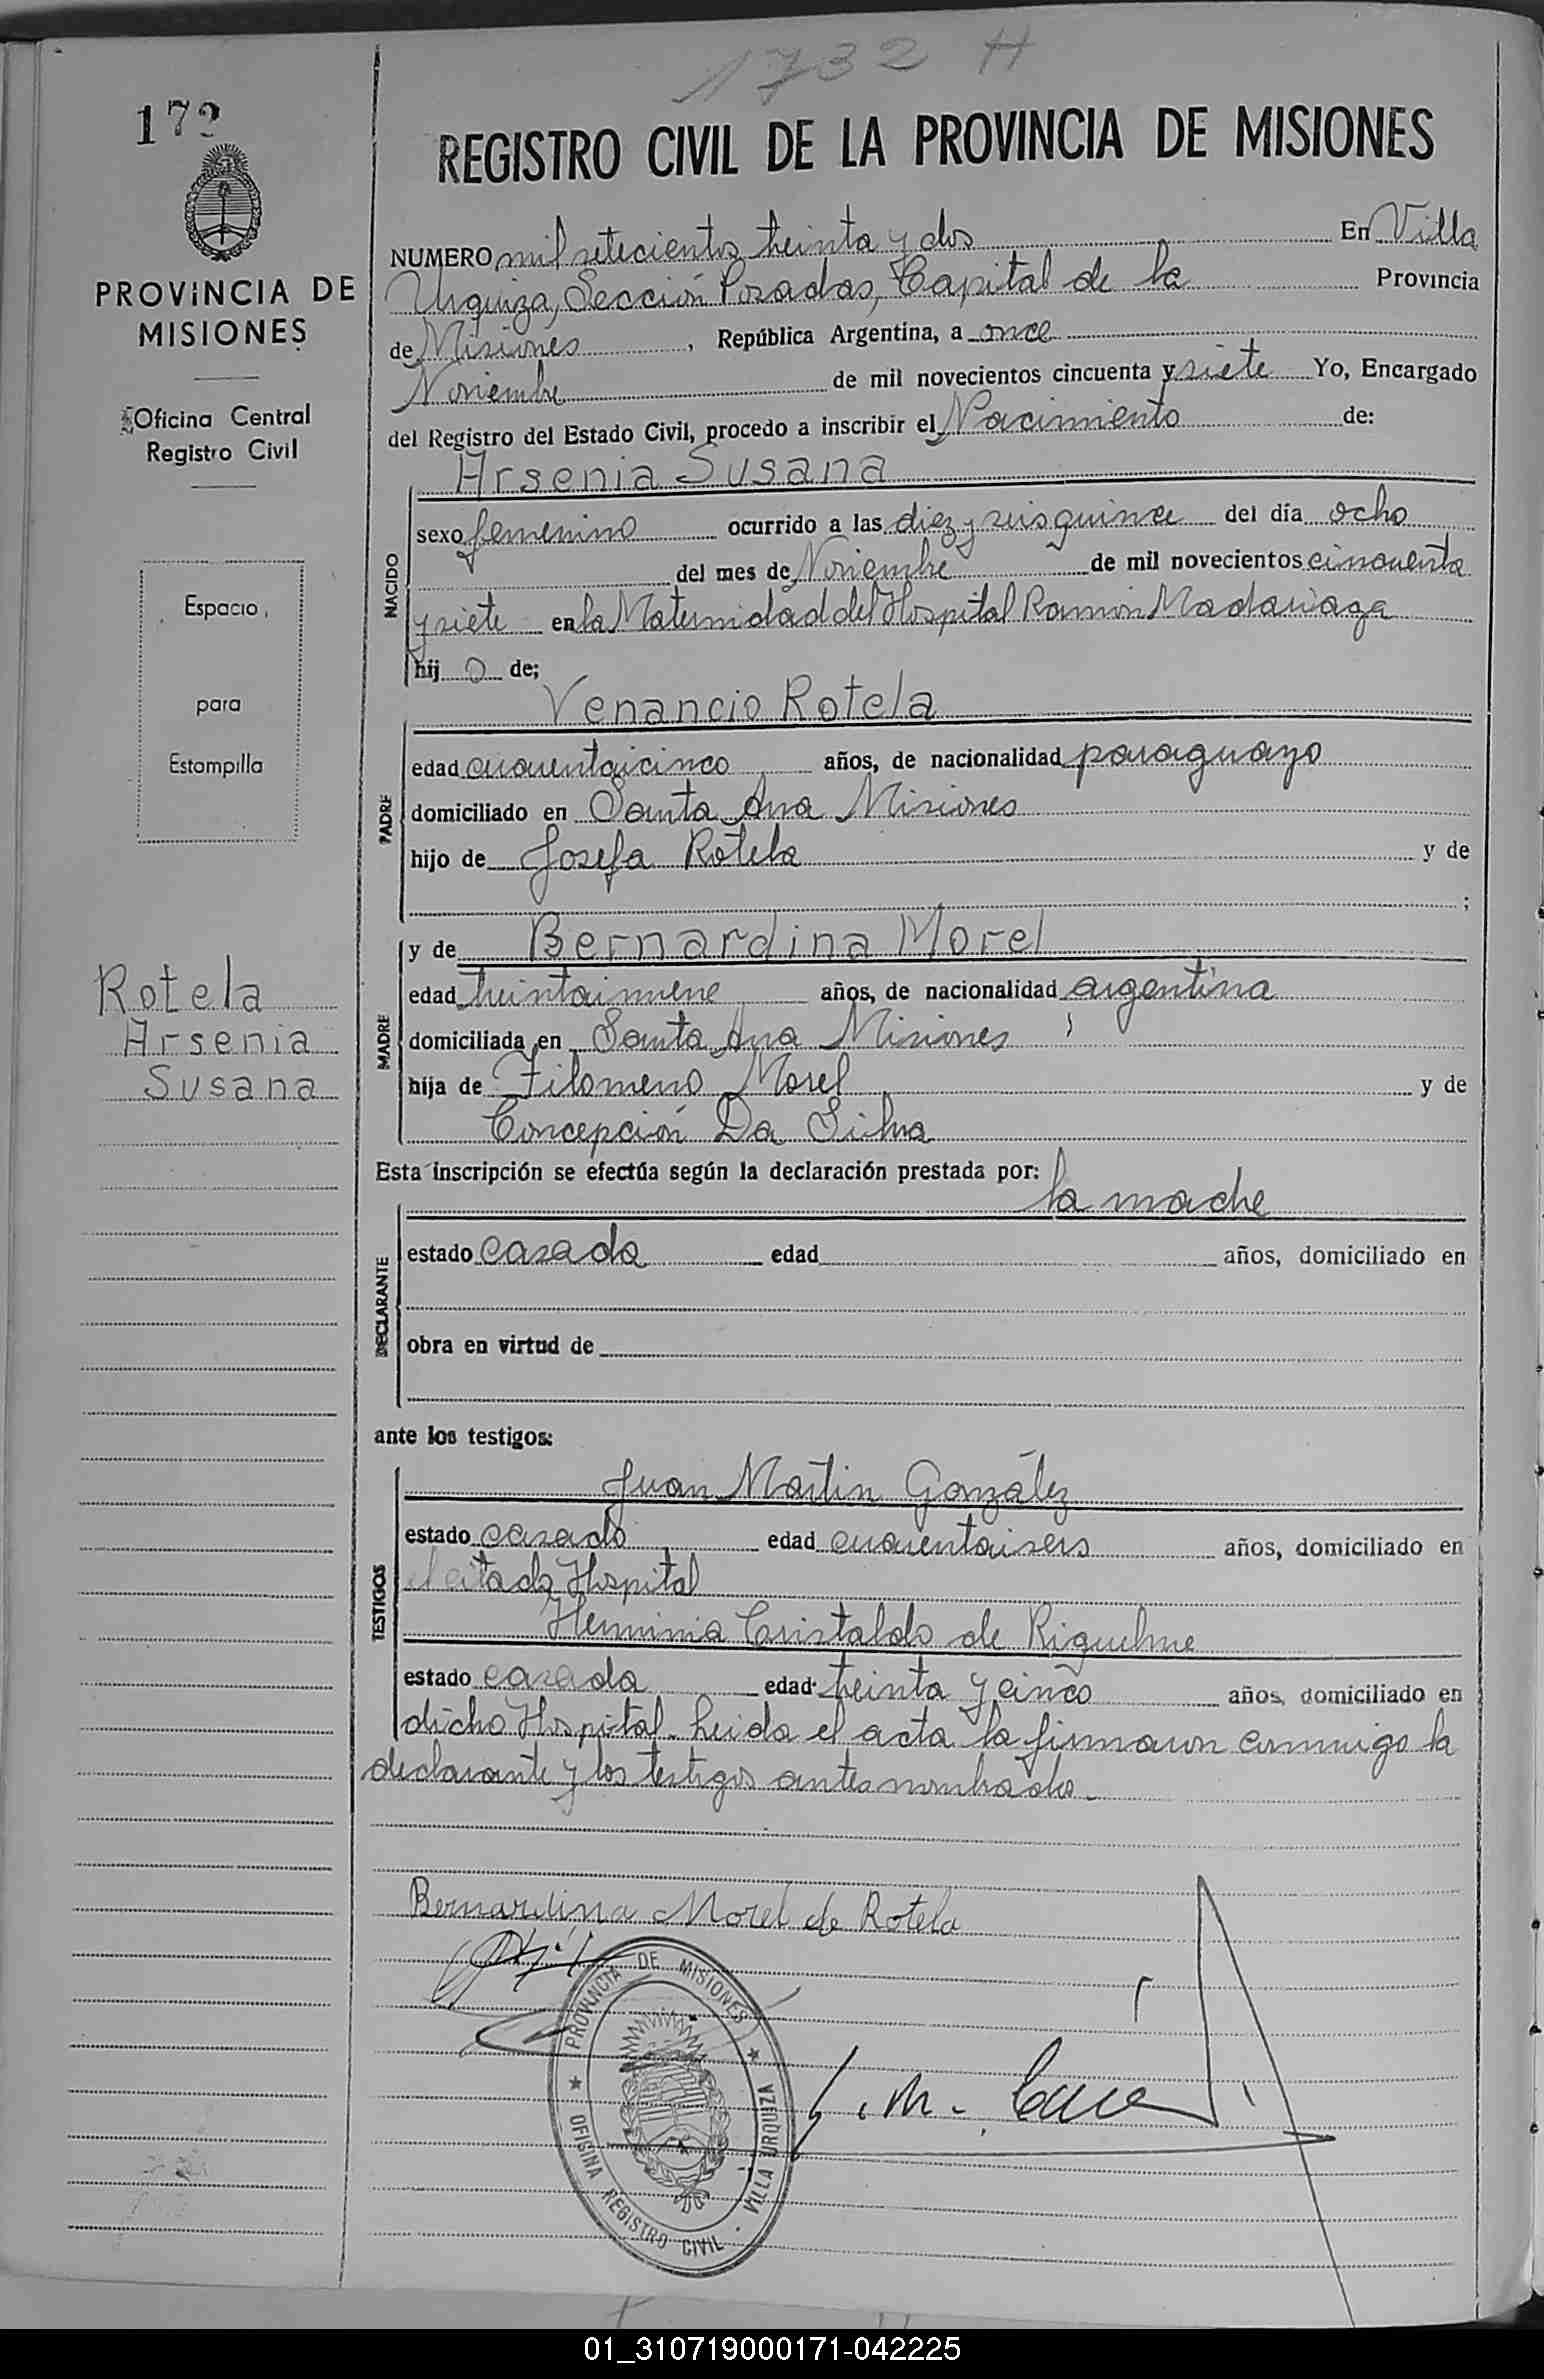 1732 H
172
REGISTRO CIVIL DE LA PROVINCIA DE MISIONES
PROVINCIA DE
MISIONES
Oficina Central
Registro Civil
Espacio
para
Estampilla
Rotela
Arsenia
Susana
NUMERO mil setecientos treinta y dos En Villa
Urquiza, Sección Posadas, Capital de la Provincia
de Misiones, República Argentina, a once
Noviembre de mil novecientos cincuenta y siete Yo, Encargado
del Registro del Estado Civil, procedo a inscribir el Nacimiento de:
Arsenia Susana
NACIDO
sexo femenino ocurrido a las diez y seis quince del día ocho
del mes de Noviembre de mil novecientos cincuenta
y siete en la Maternidad del Hospital Ramón Madariaga
hij o de;
Venancio Rotela
PADRE
edad cuarentaicinco años, de nacionalidad paraguayo
domiciliado en Santa Ana Misiones
hijo de Josefa Rotela y de
;
y de Bernardina Morel
MADRE
edad treintainueve años, de nacionalidad argentina
domiciliada en Santa Ana Misiones
hija de Filomeno Morel y de
Concepción Da Silva
Esta inscripción se efectúa según la declaración prestada por:
la madre
DECLARANTE
estado casada edad años, domiciliado en
obra en virtud de
ante los testigos:
Juan Martin González
TESTIGOS
estado casado edad cuarentaiseis años, domiciliado en
el citado Hospital
Herminia Cristaldo de Riquelme
estado casada edad treinta y cinco años, domiciliado en
dicho Hospital. Leida el acta la firmaron conmigo la
declarante y los testigos antes nombrados.
Bernardina Morel de Rotela
PROVINCIA DE MISIONES
OFICINA REGISTRO CIVIL · VILLA URQUIZA
01_310719000171-042225